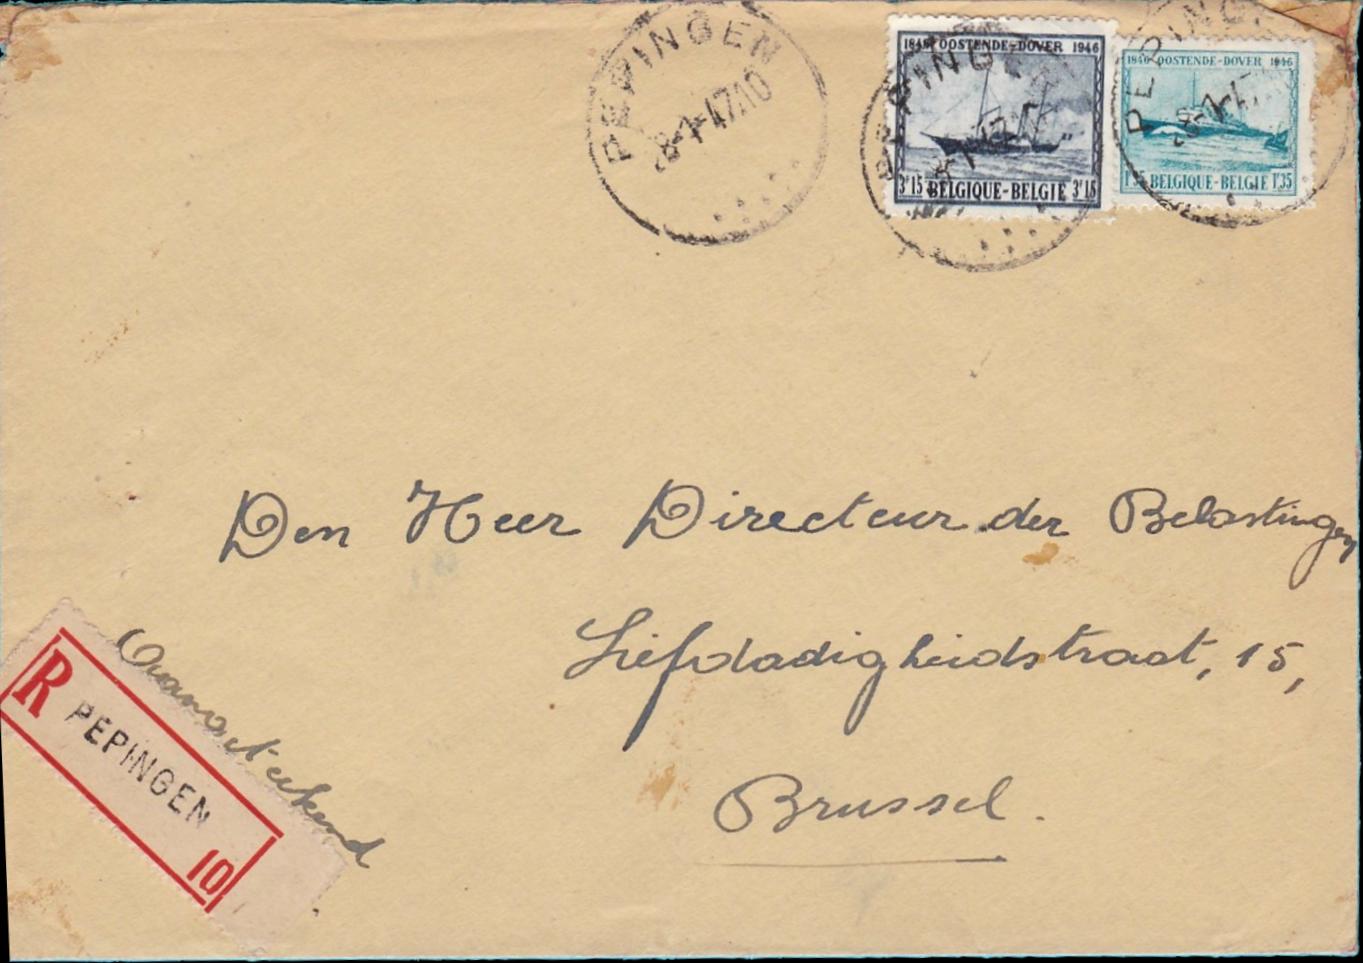 PEPINGEN
28-1-47.10
1846 OOSTENDE-DOVER 1946
3F15 BELGIQUE-BELGIE 3F15
PEPINGEN
1846 OOSTENDE-DOVER 1946
1F35 BELGIQUE-BELGIE 1F35
PEPING
Den Heer Directeur der Belastingen
Liefdadigheidstraat, 15,
Brussel.
Aangeteekend
R PEPINGEN
10